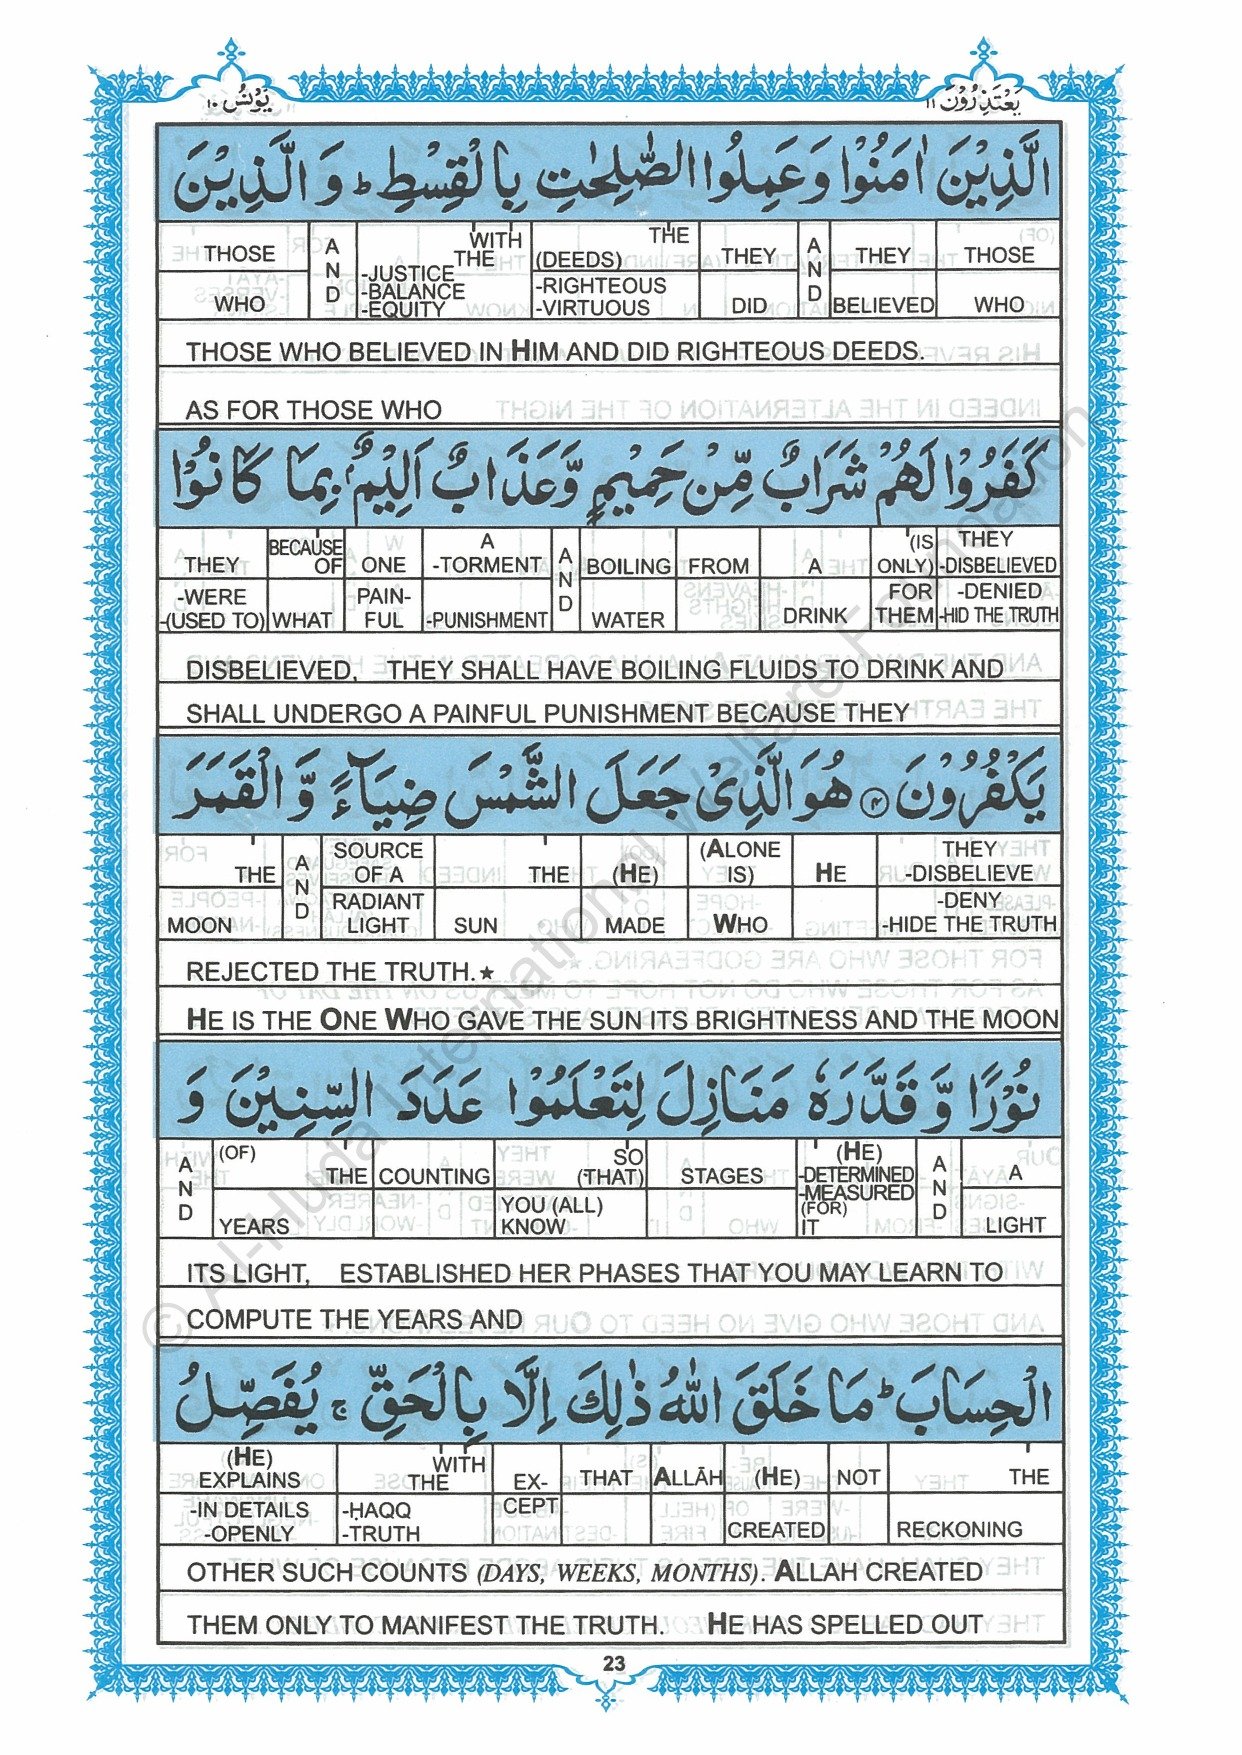 يَعْتَذِرُوْنَ ١١
يُوْنُس ١٠
الَّذِيْنَ اٰمَنُوْا وَعَمِلُوا الصّٰلِحٰتِ بِالْقِسْطِ ؕ وَ الَّذِيْنَ
THOSE WHO | THEY BELIEVED | AND | THEY DID | THE (DEEDS) -RIGHTEOUS -VIRTUOUS | WITH THE -JUSTICE -BALANCE -EQUITY | AND | THOSE WHO
THOSE WHO BELIEVED IN HIM AND DID RIGHTEOUS DEEDS.
AS FOR THOSE WHO
كَفَرُوْا لَهُمْ شَرَابٌ مِّنْ حَمِيْمٍ وَّعَذَابٌ اَلِيْمٌۢ بِمَا كَانُوْا
THEY -DISBELIEVED -DENIED -HID THE TRUTH | (IS ONLY) FOR THEM | A DRINK | FROM | BOILING WATER | AND | A -TORMENT -PUNISHMENT | ONE PAIN-FUL | BECAUSE OF WHAT | THEY -WERE -(USED TO)
DISBELIEVED, THEY SHALL HAVE BOILING FLUIDS TO DRINK AND
SHALL UNDERGO A PAINFUL PUNISHMENT BECAUSE THEY
يَكْفُرُوْنَ ۴ هُوَ الَّذِىْ جَعَلَ الشَّمْسَ ضِيَآءً وَّ الْقَمَرَ
THEY -DISBELIEVE -DENY -HIDE THE TRUTH | HE | (ALONE IS) WHO | (HE) MADE | THE SUN | SOURCE OF A RADIANT LIGHT | AND | THE MOON
REJECTED THE TRUTH.★
HE IS THE ONE WHO GAVE THE SUN ITS BRIGHTNESS AND THE MOON
نُوْرًا وَّ قَدَّرَهٗ مَنَازِلَ لِتَعْلَمُوْا عَدَدَ السِّنِيْنَ وَ
A LIGHT | AND | (HE) -DETERMINED -MEASURED (FOR) IT | STAGES | SO (THAT) YOU (ALL) KNOW | COUNTING | (OF) THE YEARS | AND
ITS LIGHT, ESTABLISHED HER PHASES THAT YOU MAY LEARN TO
COMPUTE THE YEARS AND
الْحِسَابَ ؕ مَا خَلَقَ اللّٰهُ ذٰلِكَ اِلَّا بِالْحَقِّ ۚ يُفَصِّلُ
THE RECKONING | NOT | (HE) CREATED | ALLĀH | THAT | EX-CEPT | WITH THE -ḤAQQ -TRUTH | (HE) EXPLAINS -IN DETAILS -OPENLY
OTHER SUCH COUNTS (DAYS, WEEKS, MONTHS). ALLAH CREATED
THEM ONLY TO MANIFEST THE TRUTH. HE HAS SPELLED OUT
23
© Al-Huda International Welfare Foundation